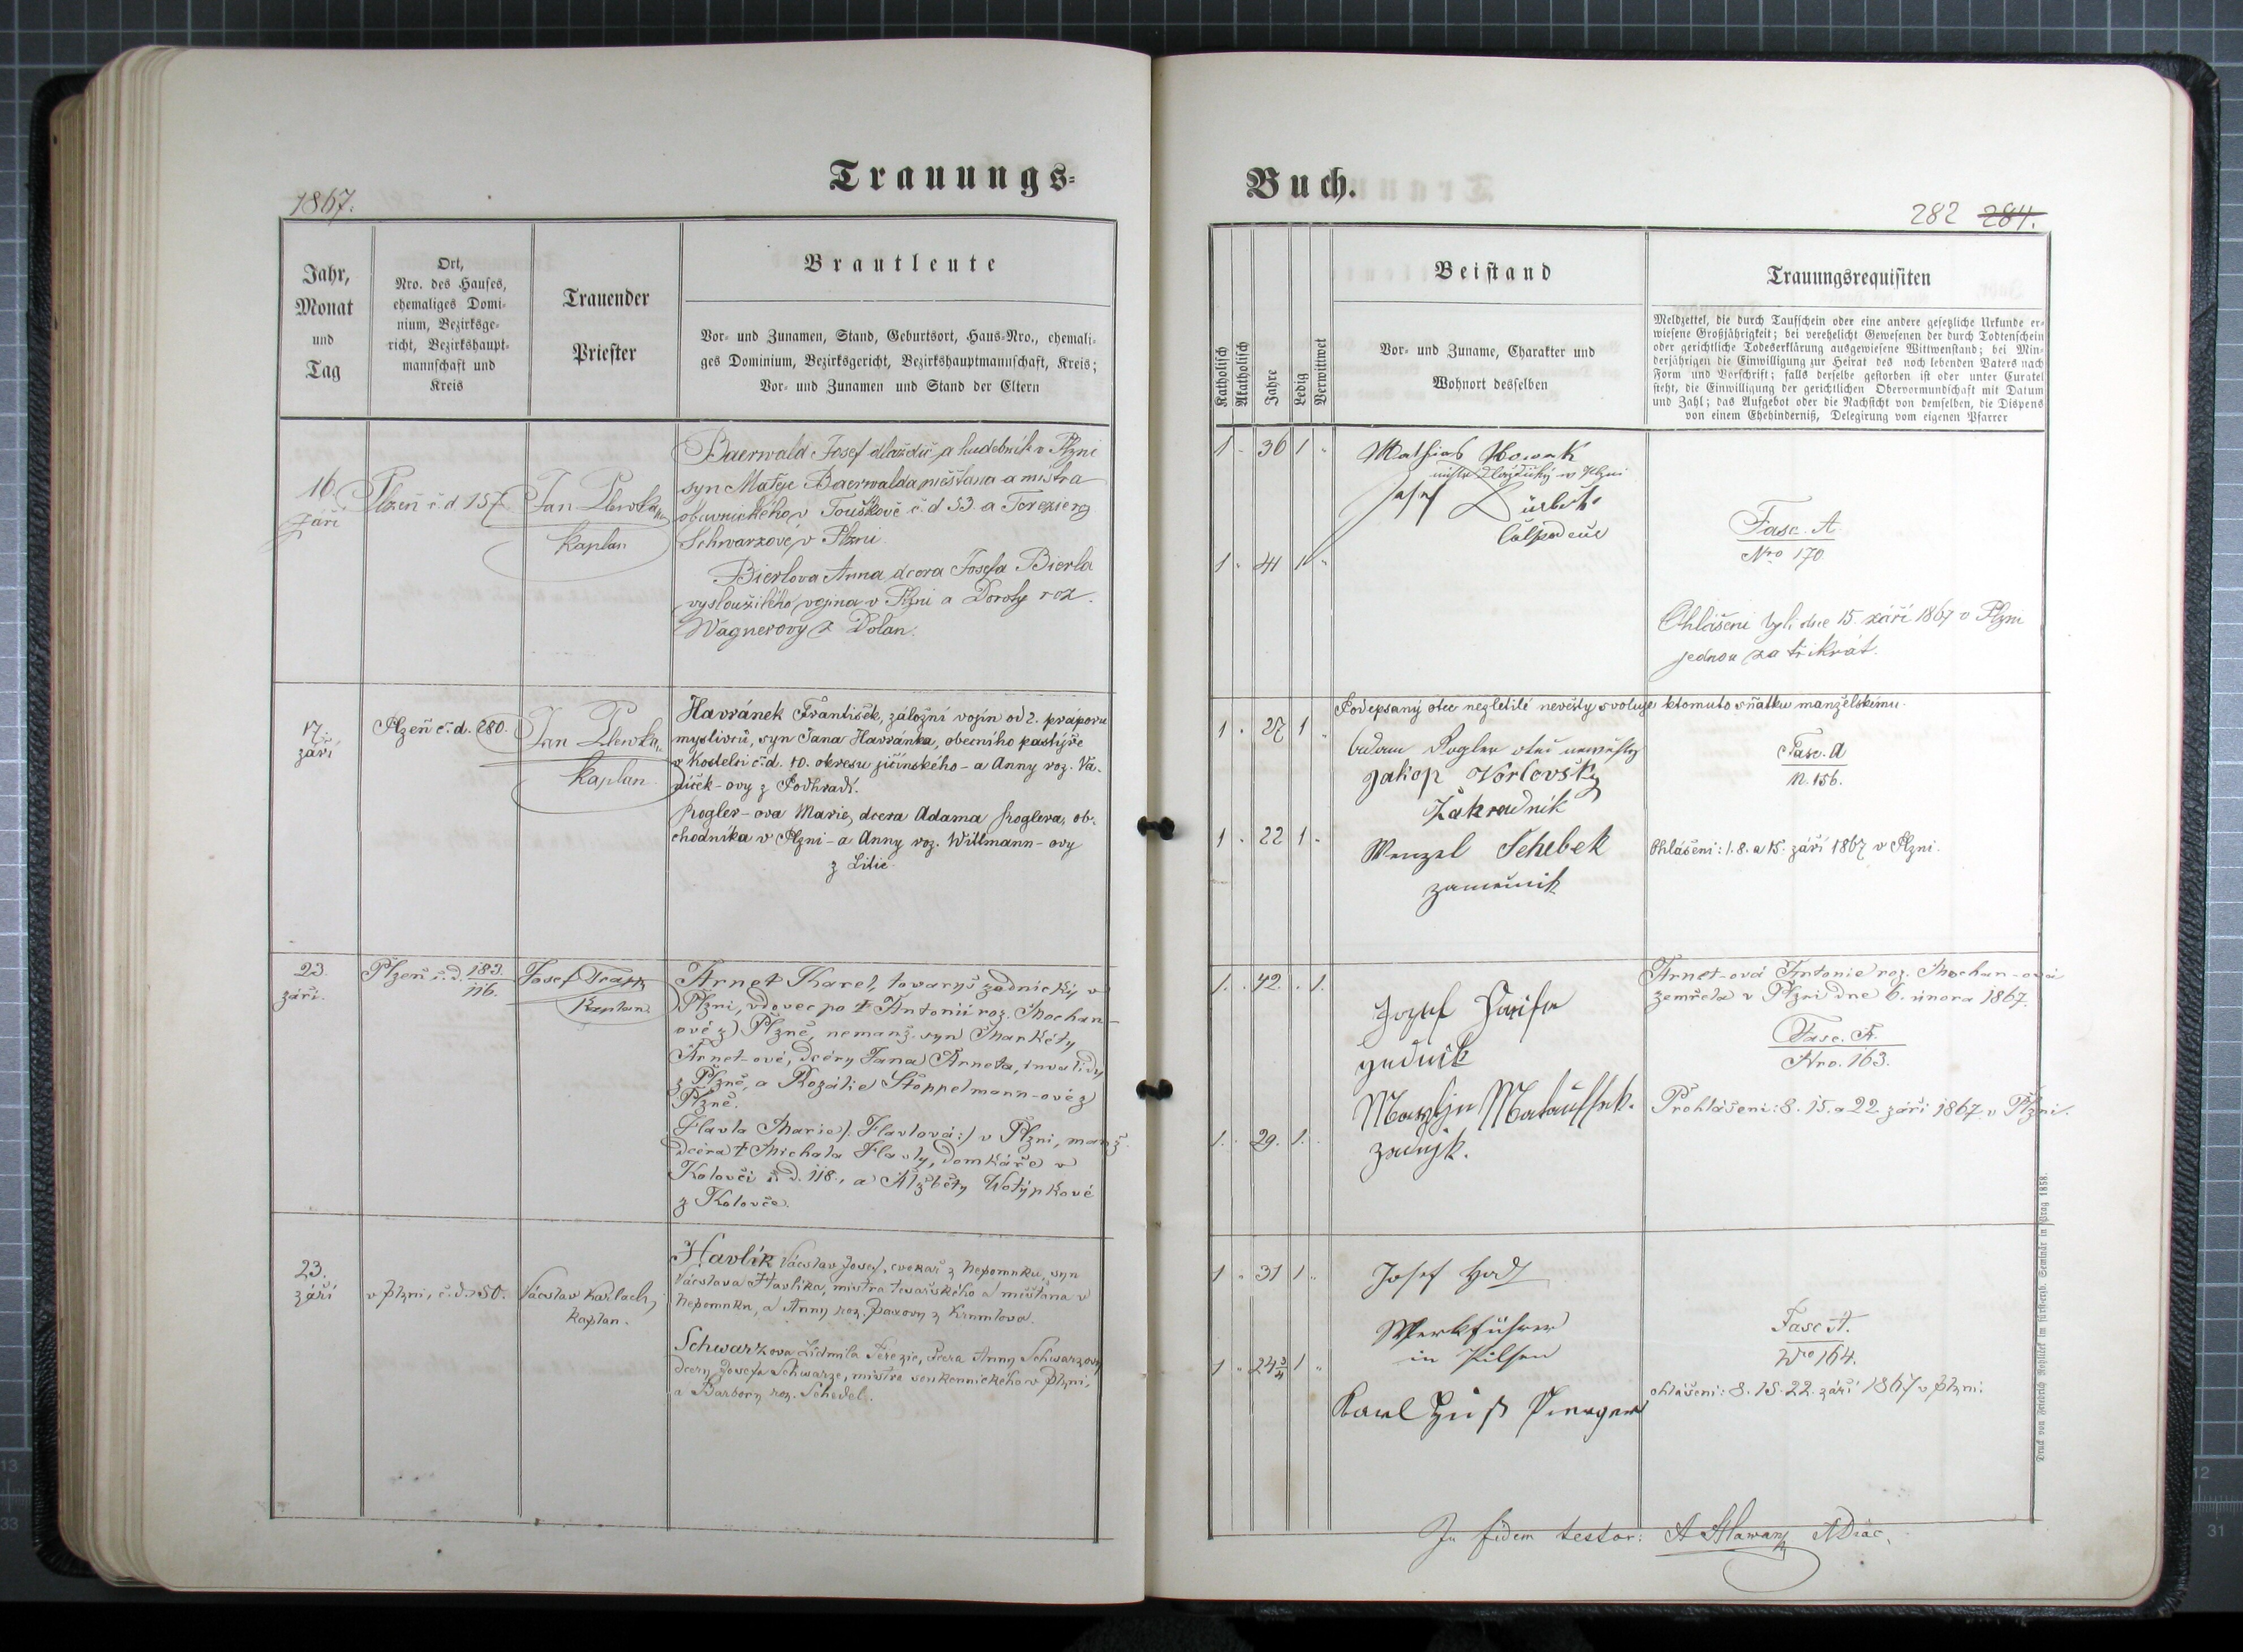 Trauungs=
1867.
Jahr,
Monat
und
Tag
Ort,
Nro. des Hauses,
ehemaliges Domi-
nium, Bezirksge-
richt, Bezirkshaupt-
mannschaft und
Kreis
Trauender
Priester
Brautleute
Vor- und Zunamen, Stand, Geburtsort, Haus-Nro., ehemali-
ges Dominium, Bezirksgericht, Bezirkshauptmannschaft, Kreis;
Vor- und Zunamen und Stand der Eltern
16.
září
Plzeň č. d. 157
Jan
kaplan
Baerwald Josef dlaždič a hudebník v Plzni
syn Matěje Baerwalda měšťana a mistra
obuvnického v Touškově č. d 53. a Terezie
Schwarzové, v Plzni
Bierlova Anna dcera Josefa Bierla
vysloužilého vojína v Plzni a Doroty roz.
Wagnerovy z Dolan.
17.
září
Plzeň č. d. 280.
Jan
kaplan
Havránek František, záložní vojín od 2. práporu
myslivců, syn Jana Havránka, obecního pastýře
v Kostelci č. d. 10. okresu jičínského - a Anny roz. Va-
níček-ovy z Podhradí.
Kogler-ova Marie, dcera Adama Koglera, ob-
chodníka v Plzni - a Anny roz. Willmann-ovy
z Litic
23.
září.
Plzeň č. d. 183.
116.
Josef
Kaplan.
Arnet Karel, tovaryš zednický v
Plzni, vdovec po † Antonii roz. Mochan-
ové z Plzně, nemanž. syn Markéty
Arnet-ové, dcéry Jana Arneta, invalidy
z Plzně, a Rozálie Stoppelmann-ové z
Plzně.
Flavla Marie /: Flavlová :/ v Plzni, manž.
dcéra † Michala Flavly, domkáře v
Kolovči č. d. 118., a Alžběty Wotýpkové
z Kolovče.
23.
září
v Plzni, č. d. 50.
Václav Karlach,
kaplan.
Havlík Václav Josef, cvokař z Nepomuku, syn
Václava Havlíka, mistra tesařského a měšťana v
Nepomuku, a Anny roz. Paxovy z Krumlova.
Schwarzova Lidmila Terezie, dcera Anny Schwarzovy
dcery Josefa Schwarze, mistra soukennického v Plzni,
a Barbory roz. Schedel.
Buch.
282 284.
Katholisch
Akatholisch
Jahre
Ledig
Verwittwet
Beistand
Vor- und Zuname, Charakter und
Wohnort desselben
Trauungsrequisiten
Meldzettel, die durch Taufschein oder eine andere gesetzliche Urkunde er-
wiesene Großjährigkeit; bei verehelicht Gewesenen der durch Todtenschein
oder gerichtliche Todeserklärung ausgewiesene Wittwenstand; bei Min-
derjährigen die Einwilligung zur Heirat des noch lebenden Vaters nach
Form und Vorschrift; falls derselbe gestorben ist oder unter Curatel
steht, die Einwilligung der gerichtlichen Obervormundschaft mit Datum
und Zahl; das Aufgebot oder die Nachsicht von demselben, die Dispens
von einem Ehehinderniß, Delegirung vom eigenen Pfarrer
1 . 36 1 .
Mathias Nowak
Josef
1 . 41 1 .
Fasc. A.
Nro 170.
Ohlášeni byli dne 15. září 1867 v Plzni
jednou za třikrát.
Podepsaný otec nezletilé nevěsty svoluje k tomuto sňatku manželskému.
1 . 27 1 .
Adam Kogler otec
Jakop Vorlovský
Zakradnik
1 . 22 1 .
Wenzel Schebek
Fasc. A
N. 156.
Ohlášeni: 1. 8. a 15. září 1867 v Plzni.
1. . 42. . 1.
Jozef
zednik
1. . 29. 1. .
Arnet-ová Antonie roz. Mochan-ová
zemřela v Plzni dne 6. února 1867.
Fasc. A.
Nro. 163.
Prohlášeni: 8. 15. a 22. září 1867 v Plzni.
1 . 31 1 .
Josef
Werkführer
in Pilsen
1 . 24 3/4 1 .
Karl
Fasc A.
Nro 164.
ohlášeni: 8. 15. 22. září 1867 v Plzni.
In fidem testor: A Hlawan
Druck von Friedrich Rohliček im fürsterzb. Seminär in Prag 1858.